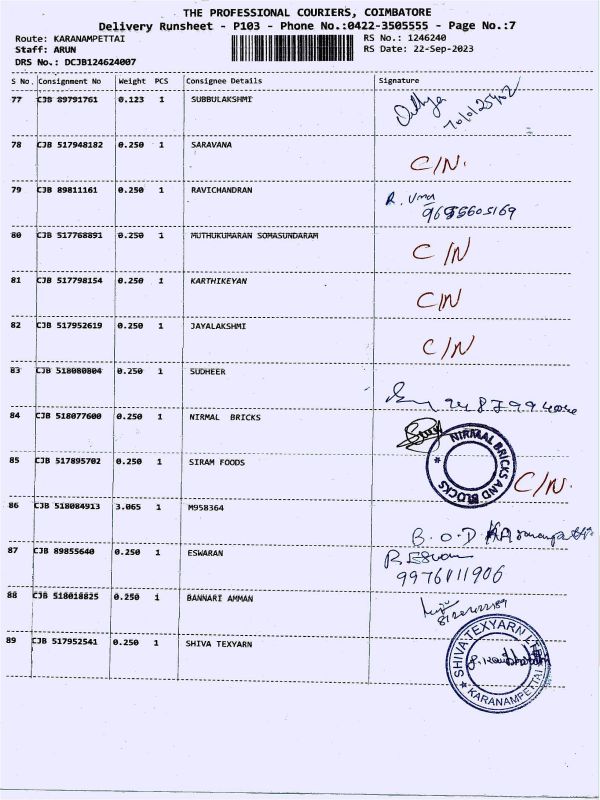 THE PROFESSIONAL COURIERS, COIMBATORE
Delivery Runsheet - P103 - Phone No.:0422-3505555 - Page No.:7
Route: KARANAMPETTAI RS No.: 1246240
Staff: ARUN RS Date: 22-Sep-2023
DRS No.: DCJB124624007
S No. Consignment No Weight PCS Consignee Details Signature
77 CJB 89791761 0.123 1 SUBBULAKSHMI
78 CJB 517948182 0.250 1 SARAVANA C/N.
79 CJB 89811161 0.250 1 RAVICHANDRAN R. Uma
9655605169
80 CJB 517768891 0.250 1 MUTHUKUMARAN SOMASUNDARAM C/N
81 CJB 517798154 0.250 1 KARTHIKEYAN C/N
82 CJB 517952619 0.250 1 JAYALAKSHMI C/N
83 CJB 518080804 0.250 1 SUDHEER
84 CJB 518077600 0.250 1 NIRMAL BRICKS NIRMAL BRICKS AND BLOCKS
85 CJB 517895702 0.250 1 SIRAM FOODS C/N.
86 CJB 518084913 3.065 1 M958364 B.O.D
87 CJB 89855640 0.250 1 ESWARAN R.Eswaran
9976111906
88 CJB 518018825 0.250 1 BANNARI AMMAN
89 CJB 517952541 0.250 1 SHIVA TEXYARN SHIVA TEXYARN LTD
KARANAMPETTAI